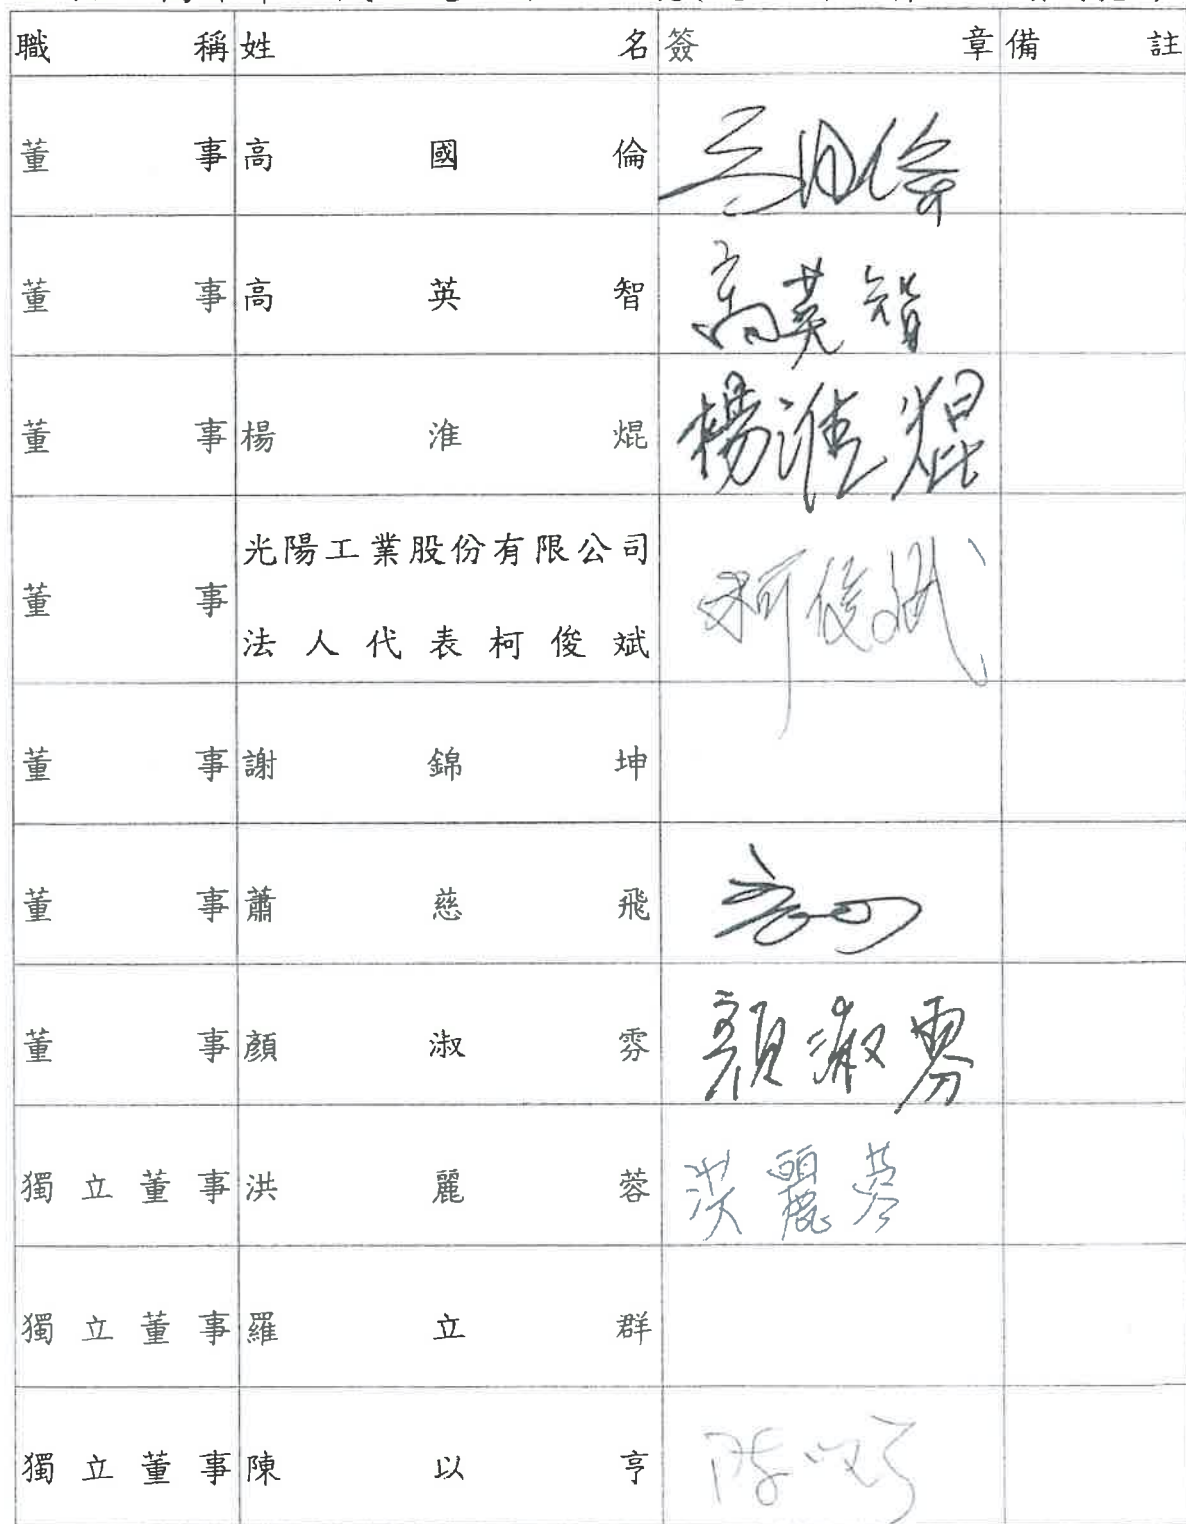 職稱 姓名 簽章 備註
董事 高國倫 高國倫
董事 高英智 高英智
董事 楊淮焜 楊淮焜
董事 光陽工業股份有限公司
法人代表柯俊斌 柯俊斌
董事 謝錦坤
董事 蕭慈飛
董事 顏淑雰 顏淑雰
獨立董事 洪麗蓉 洪麗蓉
獨立董事 羅立群
獨立董事 陳以亨 陳以亨